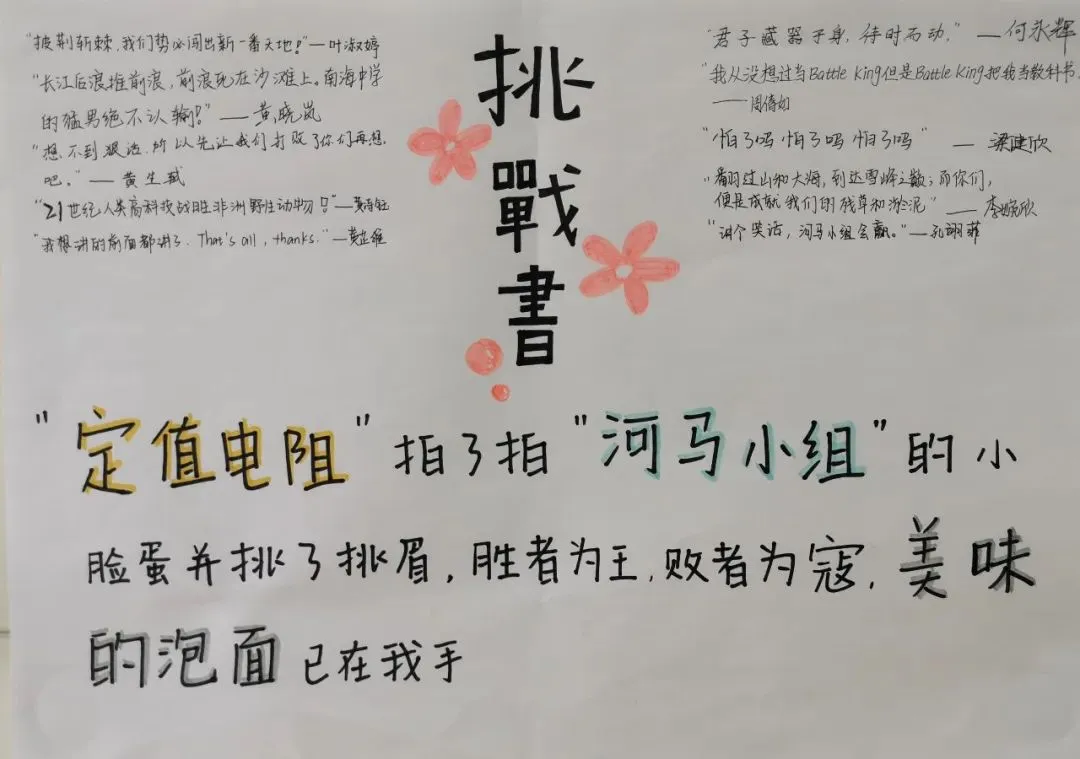 "披荆斩棘,我们势必闯出新一番天地!"—叶淑婷
"长江后浪推前浪,前浪死在沙滩上。南海中学
的猛男绝不认输!"——黄晓岚
"想不到狠话,所以先让我们打败了你们再想
吧。"—黄生
"21世纪人类高科技战胜非洲野生动物!"—黄
"我想讲的前面都讲了. That's all, thanks."—黄
挑
戰
書
"君子藏器于身,待时而动."——何永辉
"我从没想过当Battle King但是Battle King把我当教科书.
——周倩如
"怕了吗 怕了吗 怕了吗"—梁健欣
"翻过山和大海,到达雪峰之巅;而你们,
便是成就我们的残草和淤泥"——李婉欣
"讲个笑话,河马小组会赢。"—孔翊菲
"定值电阻"拍了拍"河马小组"的小
脸蛋并挑了挑眉,胜者为王,败者为寇,美味
的泡面已在我手